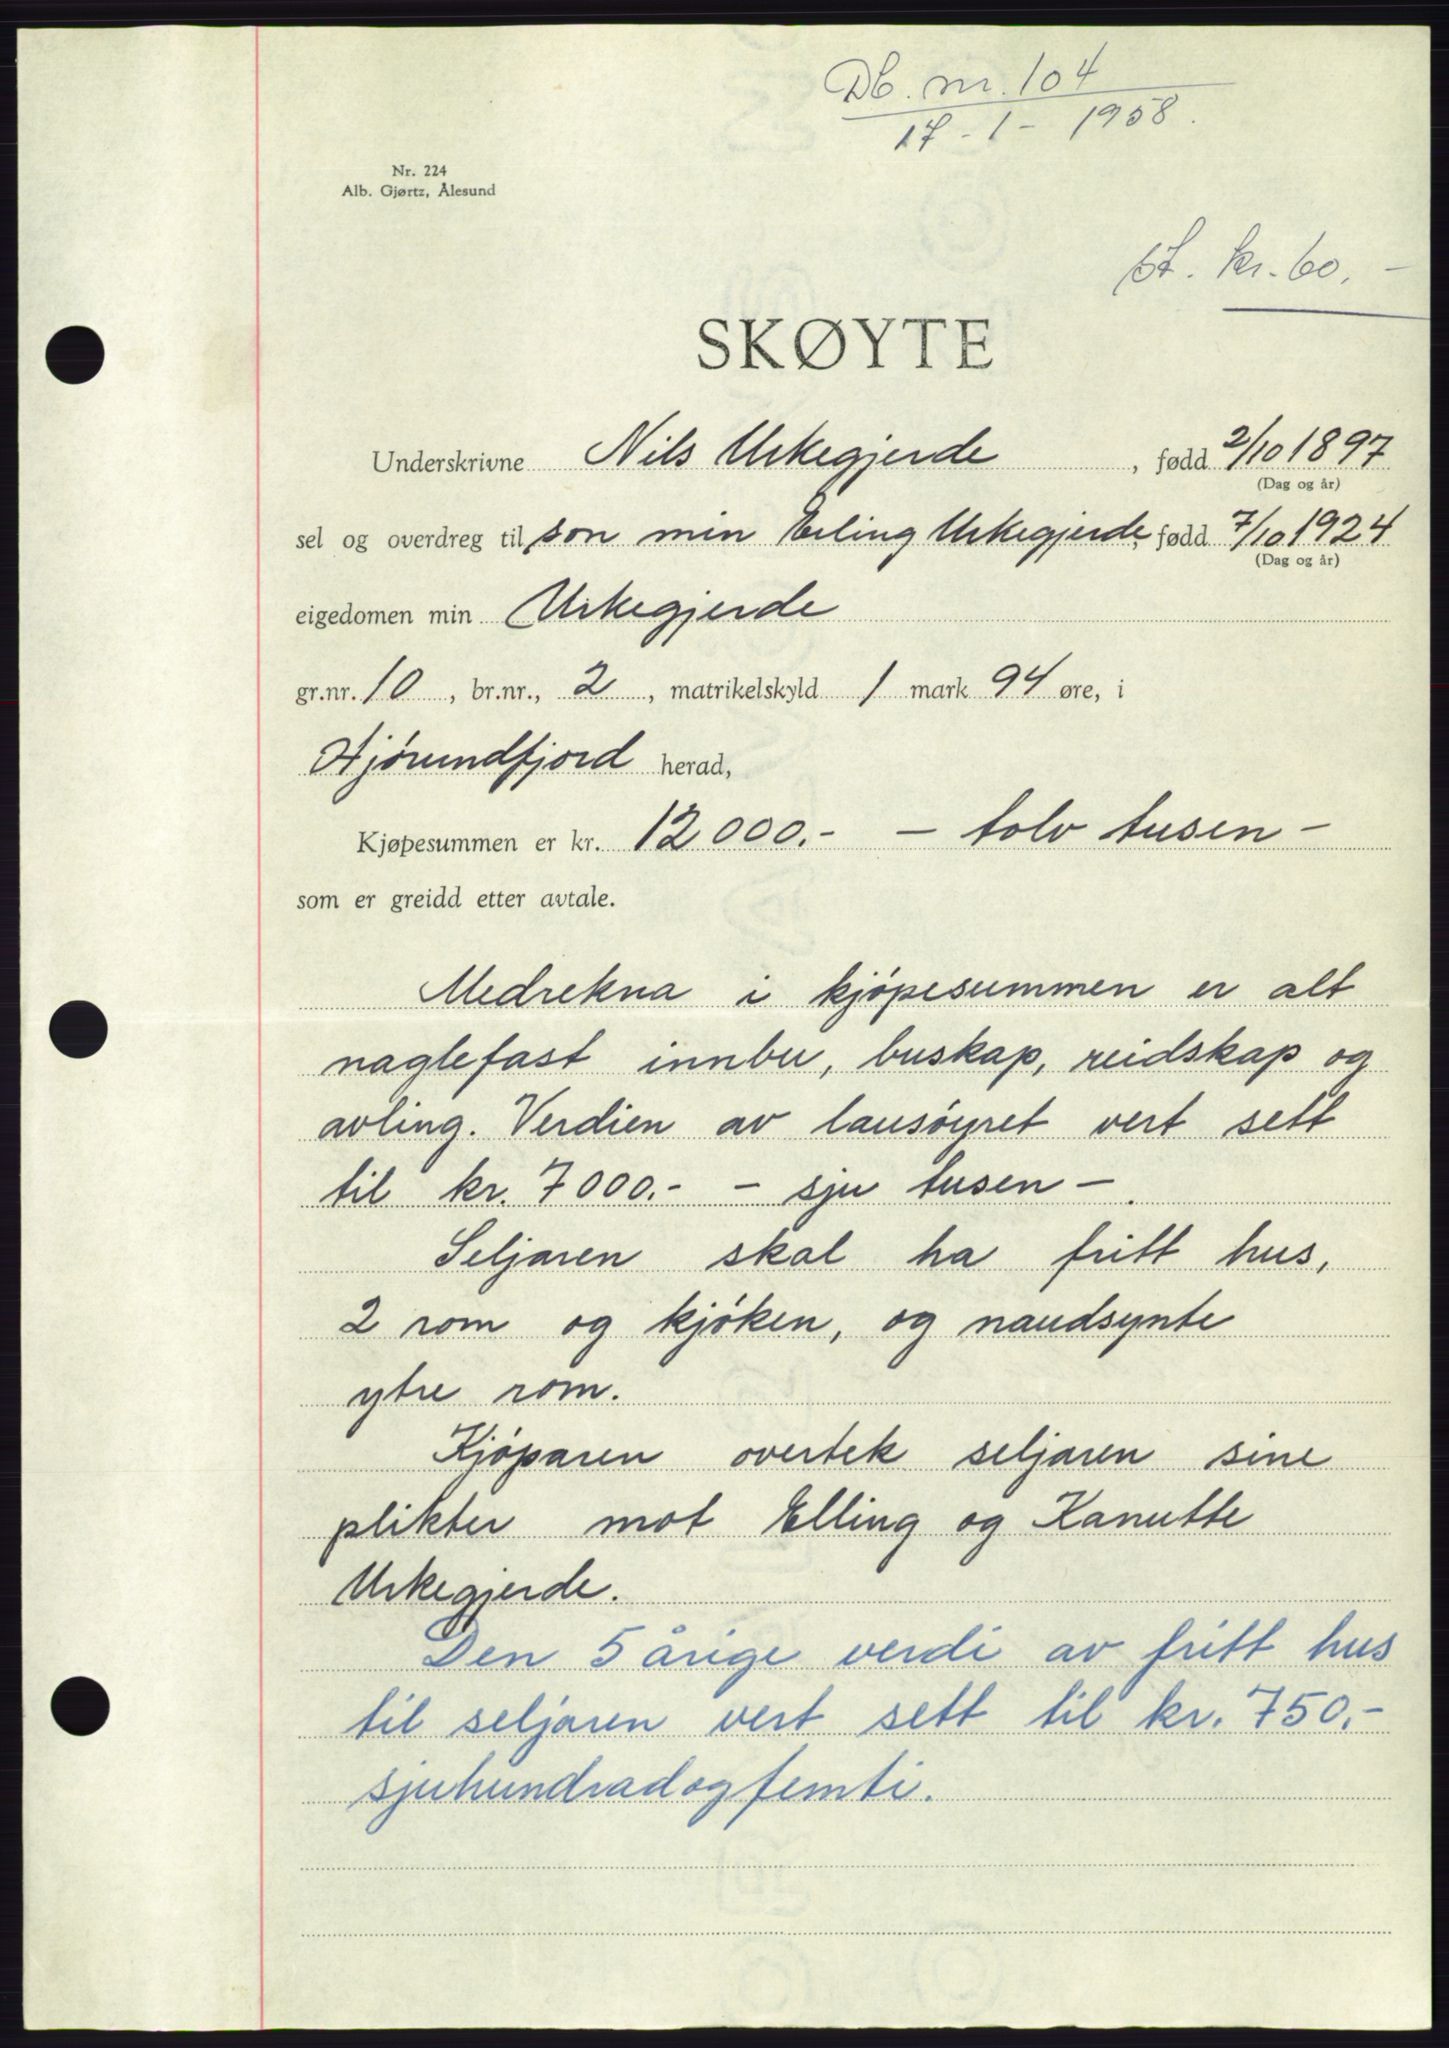 Db. nr. 104
17-1-1958.
Nr. 224
Alb. Gjørtz, Ålesund
St. kr. 60.-
SKØYTE
Underskrivne Nils Urkegjerde, fødd 2/10 1897
(Dag og år)
sel og overdreg til son min Erling Urkegjerde, fødd 7/10 1924
(Dag og år)
eigedomen min Urkegjerde
gr.nr. 10, br.nr., 2, matrikelskyld 1 mark 94 øre, i
Hjørundfjord herad,
Kjøpesummen er kr. 12000.- - tolv tusen -
som er greidd etter avtale.
Medrekna i kjøpesummen er alt
naglefast innbu, buskap, reidskap og
avling. Verdien av lausøyret vert sett
til kr. 7000.- - sju tusen -.
Seljaren skal ha fritt hus,
2 rom og kjøken, og naudsynte
ytre rom.
Kjøparen overtek seljaren sine
plikter mot Elling og Kanutte
Urkegjerde.
Den 5 årige verdi av fritt hus
til seljaren vert sett til kr. 750.-
sjuhundradogfemti.